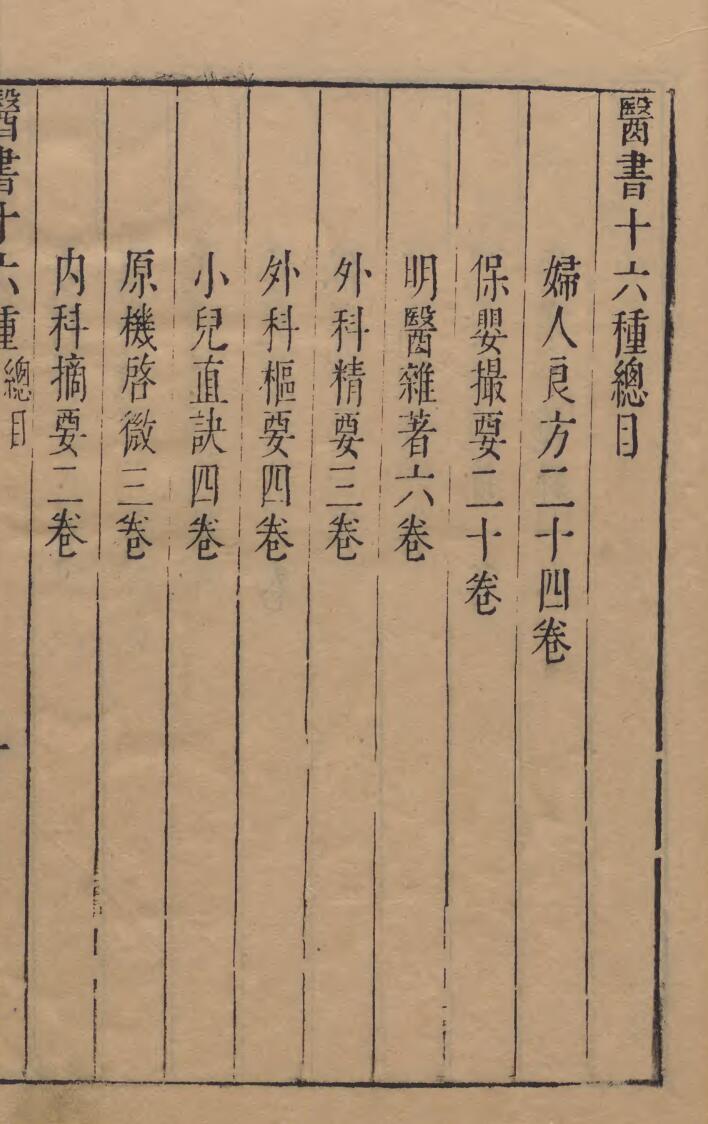 醫書十六種總目
婦人良方二十四卷
保嬰撮要二十卷
明醫雜著六卷
外科精要三卷
外科樞要四卷
小兒直訣四卷
原機啓微三卷
內科摘要二卷
醫書十六種總目
一